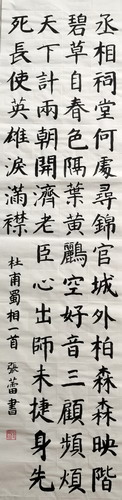 丞相祠堂何處尋錦官城外柏森森映階
碧草自春色隔葉黃鸝空好音三顧頻煩
天下計兩朝開濟老臣心出師未捷身先
死長使英雄淚滿襟
杜甫蜀相一首 張蕾書